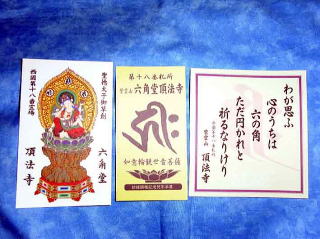 西國第十八番霊場
聖徳太子御草創
六角堂
頂法寺
第十八番札所
紫雲山 六角堂頂法寺
如意輪観世音菩薩
わが思ふ
心のうちは
六の角
ただ円かれと
祈るなりけり
紫雲山 頂法寺